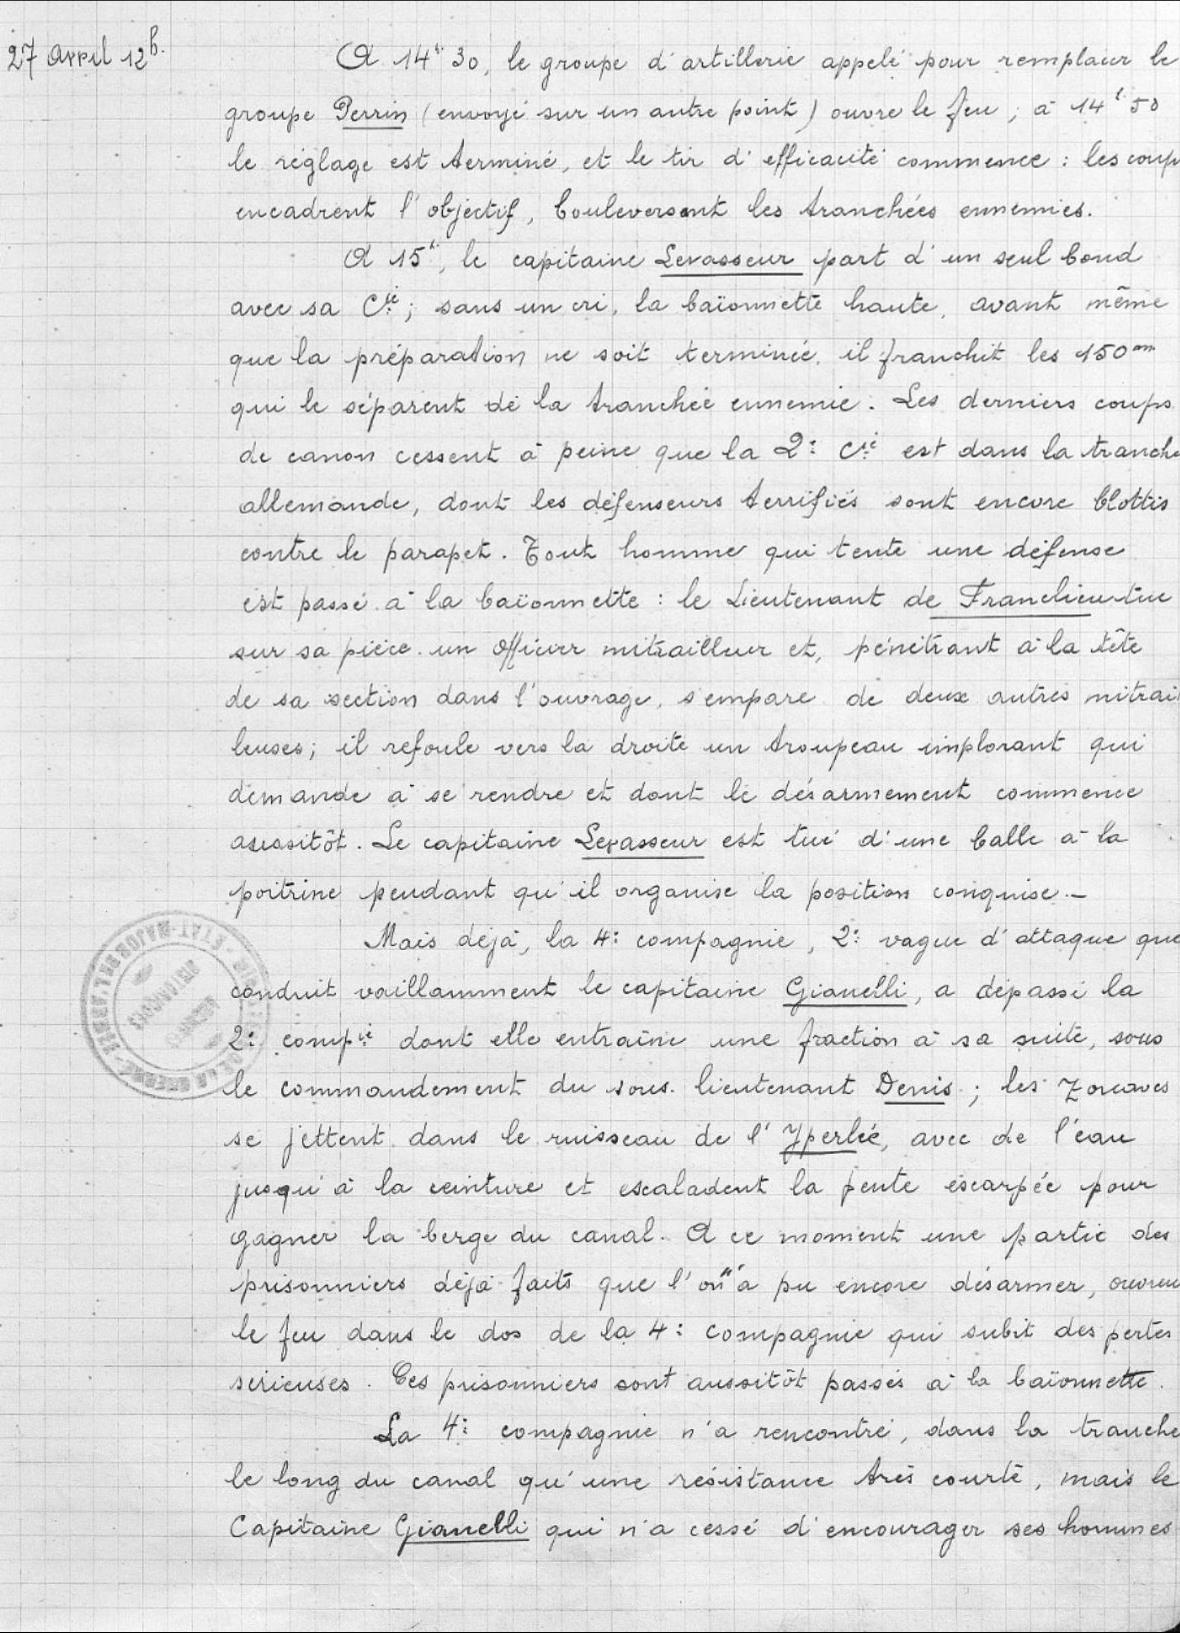 27 avril 12h.
A 14h 30, le groupe d'artillerie appelé pour remplacer le
groupe Perrin (envoyé sur un autre point) ouvre le feu ; à 14h 50
le réglage est terminé, et le tir d'efficacité commence : les coup
encadrent l'objectif, bouleversent les tranchées ennemies.
A 15h, le capitaine Levasseur part d'un seul bond
avec sa Cie ; sans un cri, la baïonnette haute, avant même
que la préparation ne soit terminée, il franchit les 150m
qui le séparent de la tranchée ennemie. Les derniers coups
de canon cessent à peine que la 2e Cie est dans la tranché
allemande, dont les défenseurs terrifiés sont encore blottis
contre le parapet. Tout homme qui tente une défense
est passé à la baïonnette : le Lieutenant de Franclieu tue
sur sa pièce un officier mitrailleur et, pénétrant à la tête
de sa section dans l'ouvrage, s'empare de deux autres mitrail
leuses ; il refoule vers la droite un troupeau implorant qui
demande à se rendre et dont le désarmement commence
aussitôt. Le capitaine Levasseur est tué d'une balle à la
poitrine pendant qu'il organise la position conquise. -
Mais déjà, la 4e compagnie, 2e vague d'attaque que
conduit vaillamment le capitaine Gianelli, a dépassé la
2e compie dont elle entraîne une fraction à sa suite, sous
le commandement du sous-lieutenant Denis ; les Zouaves
se jettent dans le ruisseau de l'Yperlée, avec de l'eau
jusqu'à la ceinture et escaladent la pente escarpée pour
gagner la berge du canal. A ce moment une partie des
prisonniers déjà faits que l'on n'a pu encore désarmer, ouvren
le feu dans le dos de la 4e compagnie qui subit des pertes
sérieuses. Ces prisonniers sont aussitôt passés à la baïonnette.
La 4e compagnie n'a rencontré, dans la tranché
le long du canal qu'une résistance très courte, mais le
Capitaine Gianelli qui n'a cessé d'encourager ses hommes